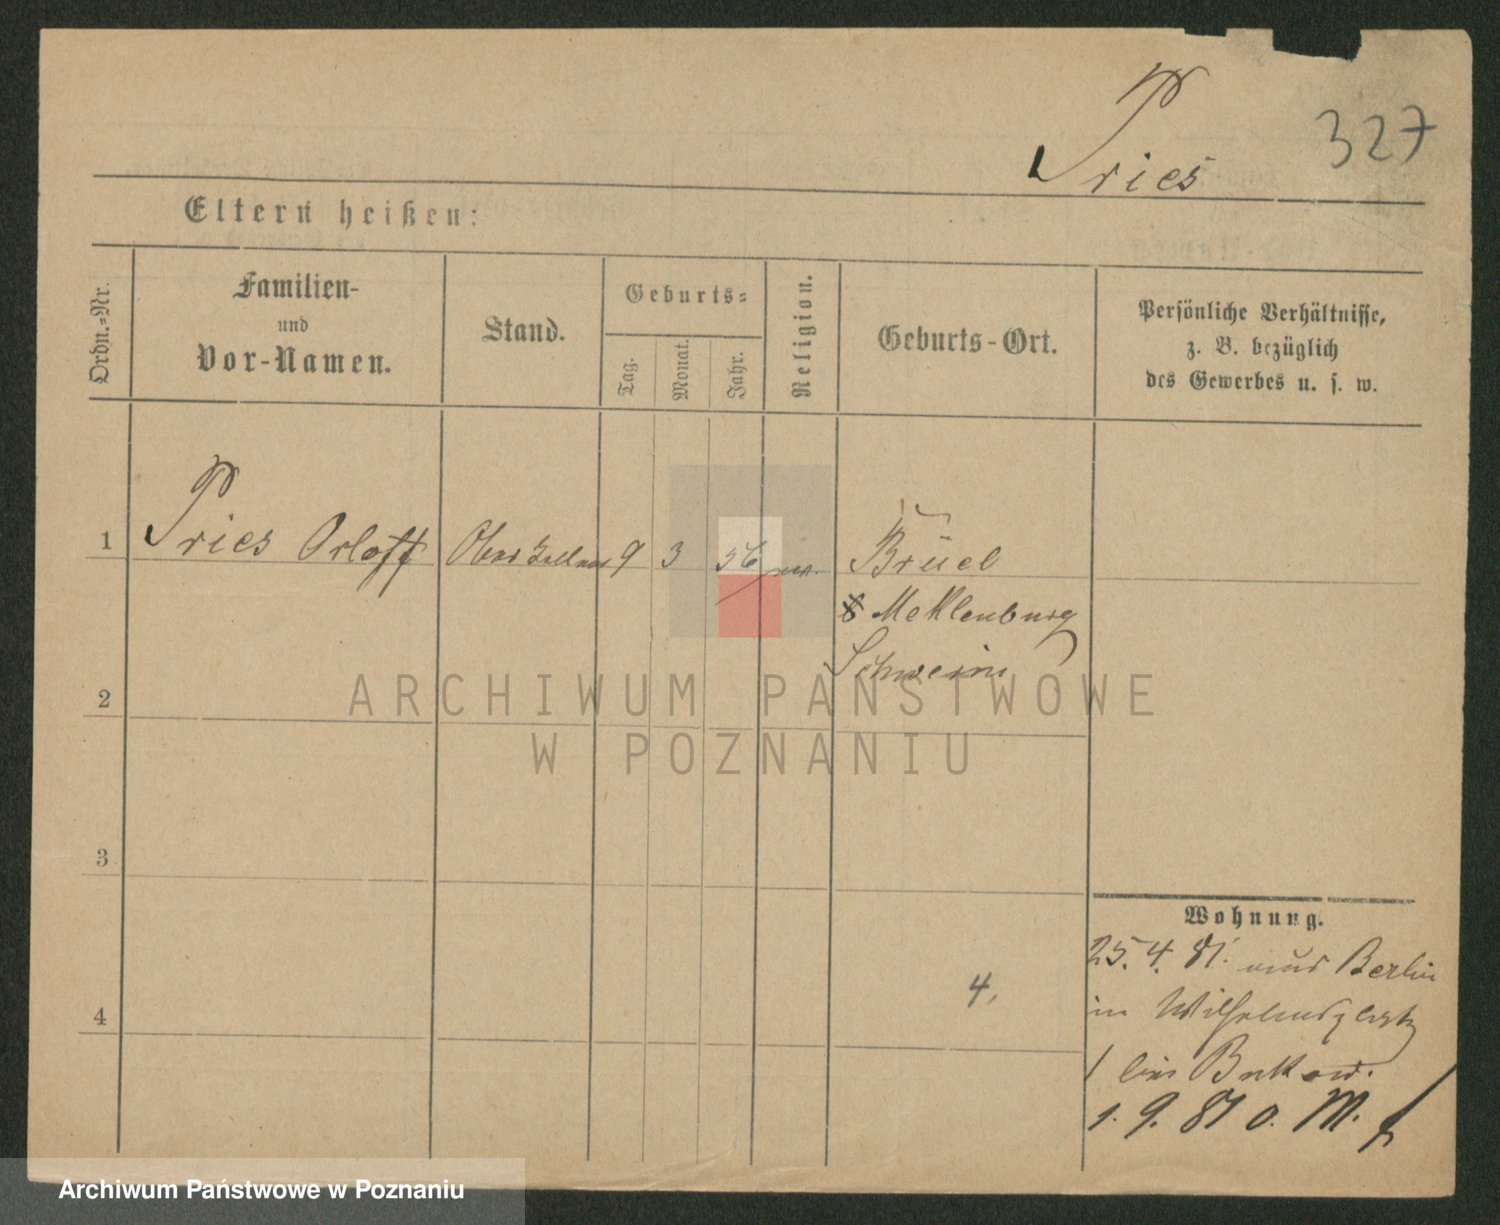 Pries
327
Eltern heißen:
Ordn.-Nr.
Familien-
und
Vor-Namen.
Stand.
Geburts-
Tag.
Monat.
Jahr.
Religion.
Geburts-Ort.
Persönliche Verhältnisse,
z. B. bezüglich
des Gewerbes u. s. w.
1
Pries Orloff
Oberkellner
9
3
56
Brüel
Meklenburg
Schwerin
2
3
4
4.
Wohnung.
25. 4. 81. aus Berlin
in Wilhelmsplatz
1 bei
1. 9. 81 o. M.
ARCHIWUM PAŃSTWOWE
W POZNANIU
Archiwum Państwowe w Poznaniu